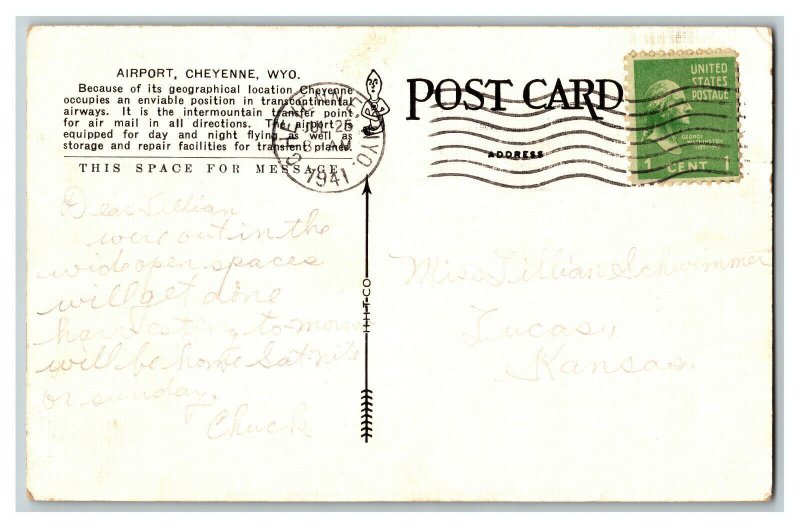 AIRPORT, CHEYENNE, WYO.
Because of its geographical location Cheyenne
occupies an enviable position in transcontinental
airways. It is the intermountain transfer point
for air mail in all directions. The airport is
equipped for day and night flying as well as
storage and repair facilities for transient planes.
THIS SPACE FOR MESSAGE
Dear Lillian
were out in the
wide open spaces
will get done
harvesting to-morrow
will be home Sat. nite
or sunday.
Chuck
CHEYENNE WYO.
25
AM
1941
H.H.T. CO
POST CARD
ADDRESS
UNITED
STATES
POSTAGE
GEORGE
WASHINGTON
1 CENT 1
Miss Lillian Schwimmer
Lucas,
Kansas.